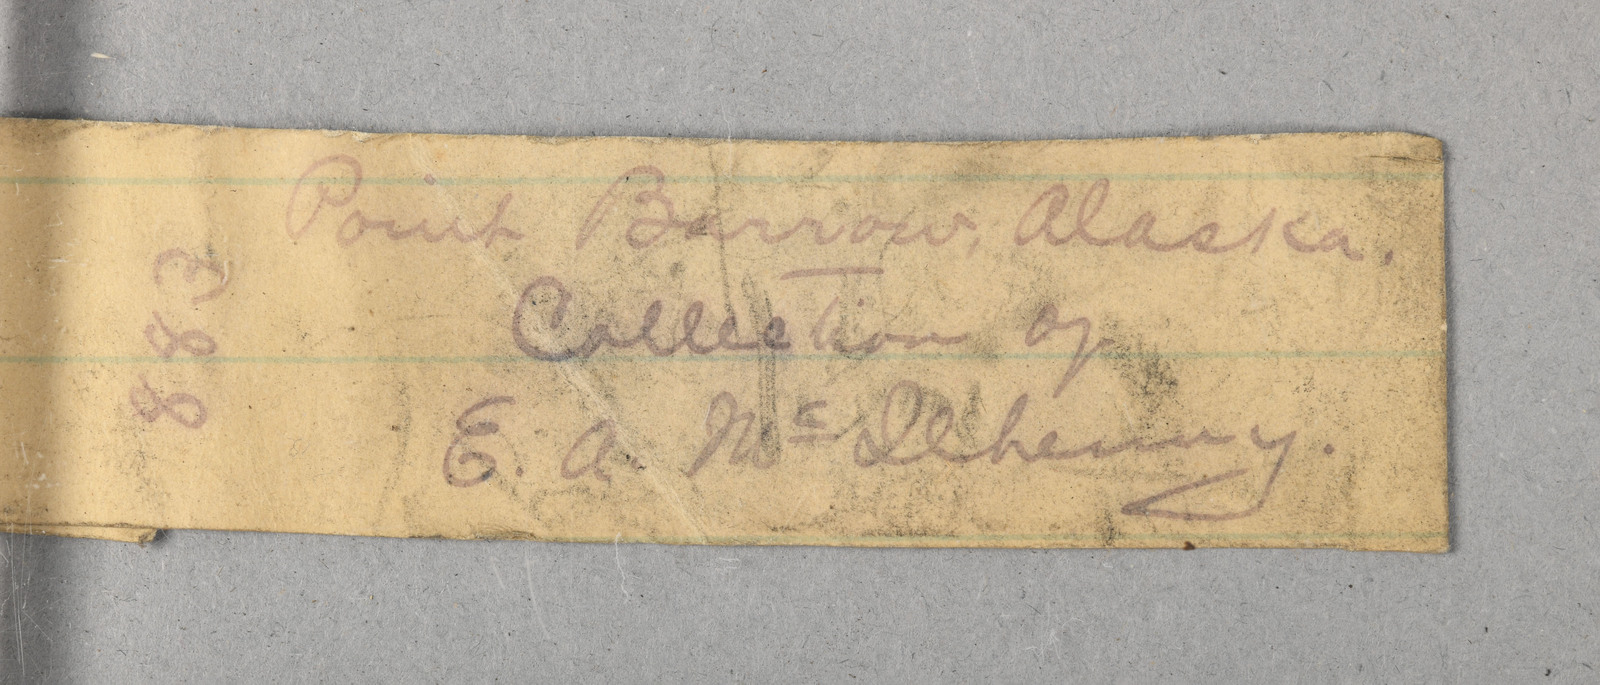 883
Point Barrow, Alaska.
Collection of
E. A. McIlhenny.